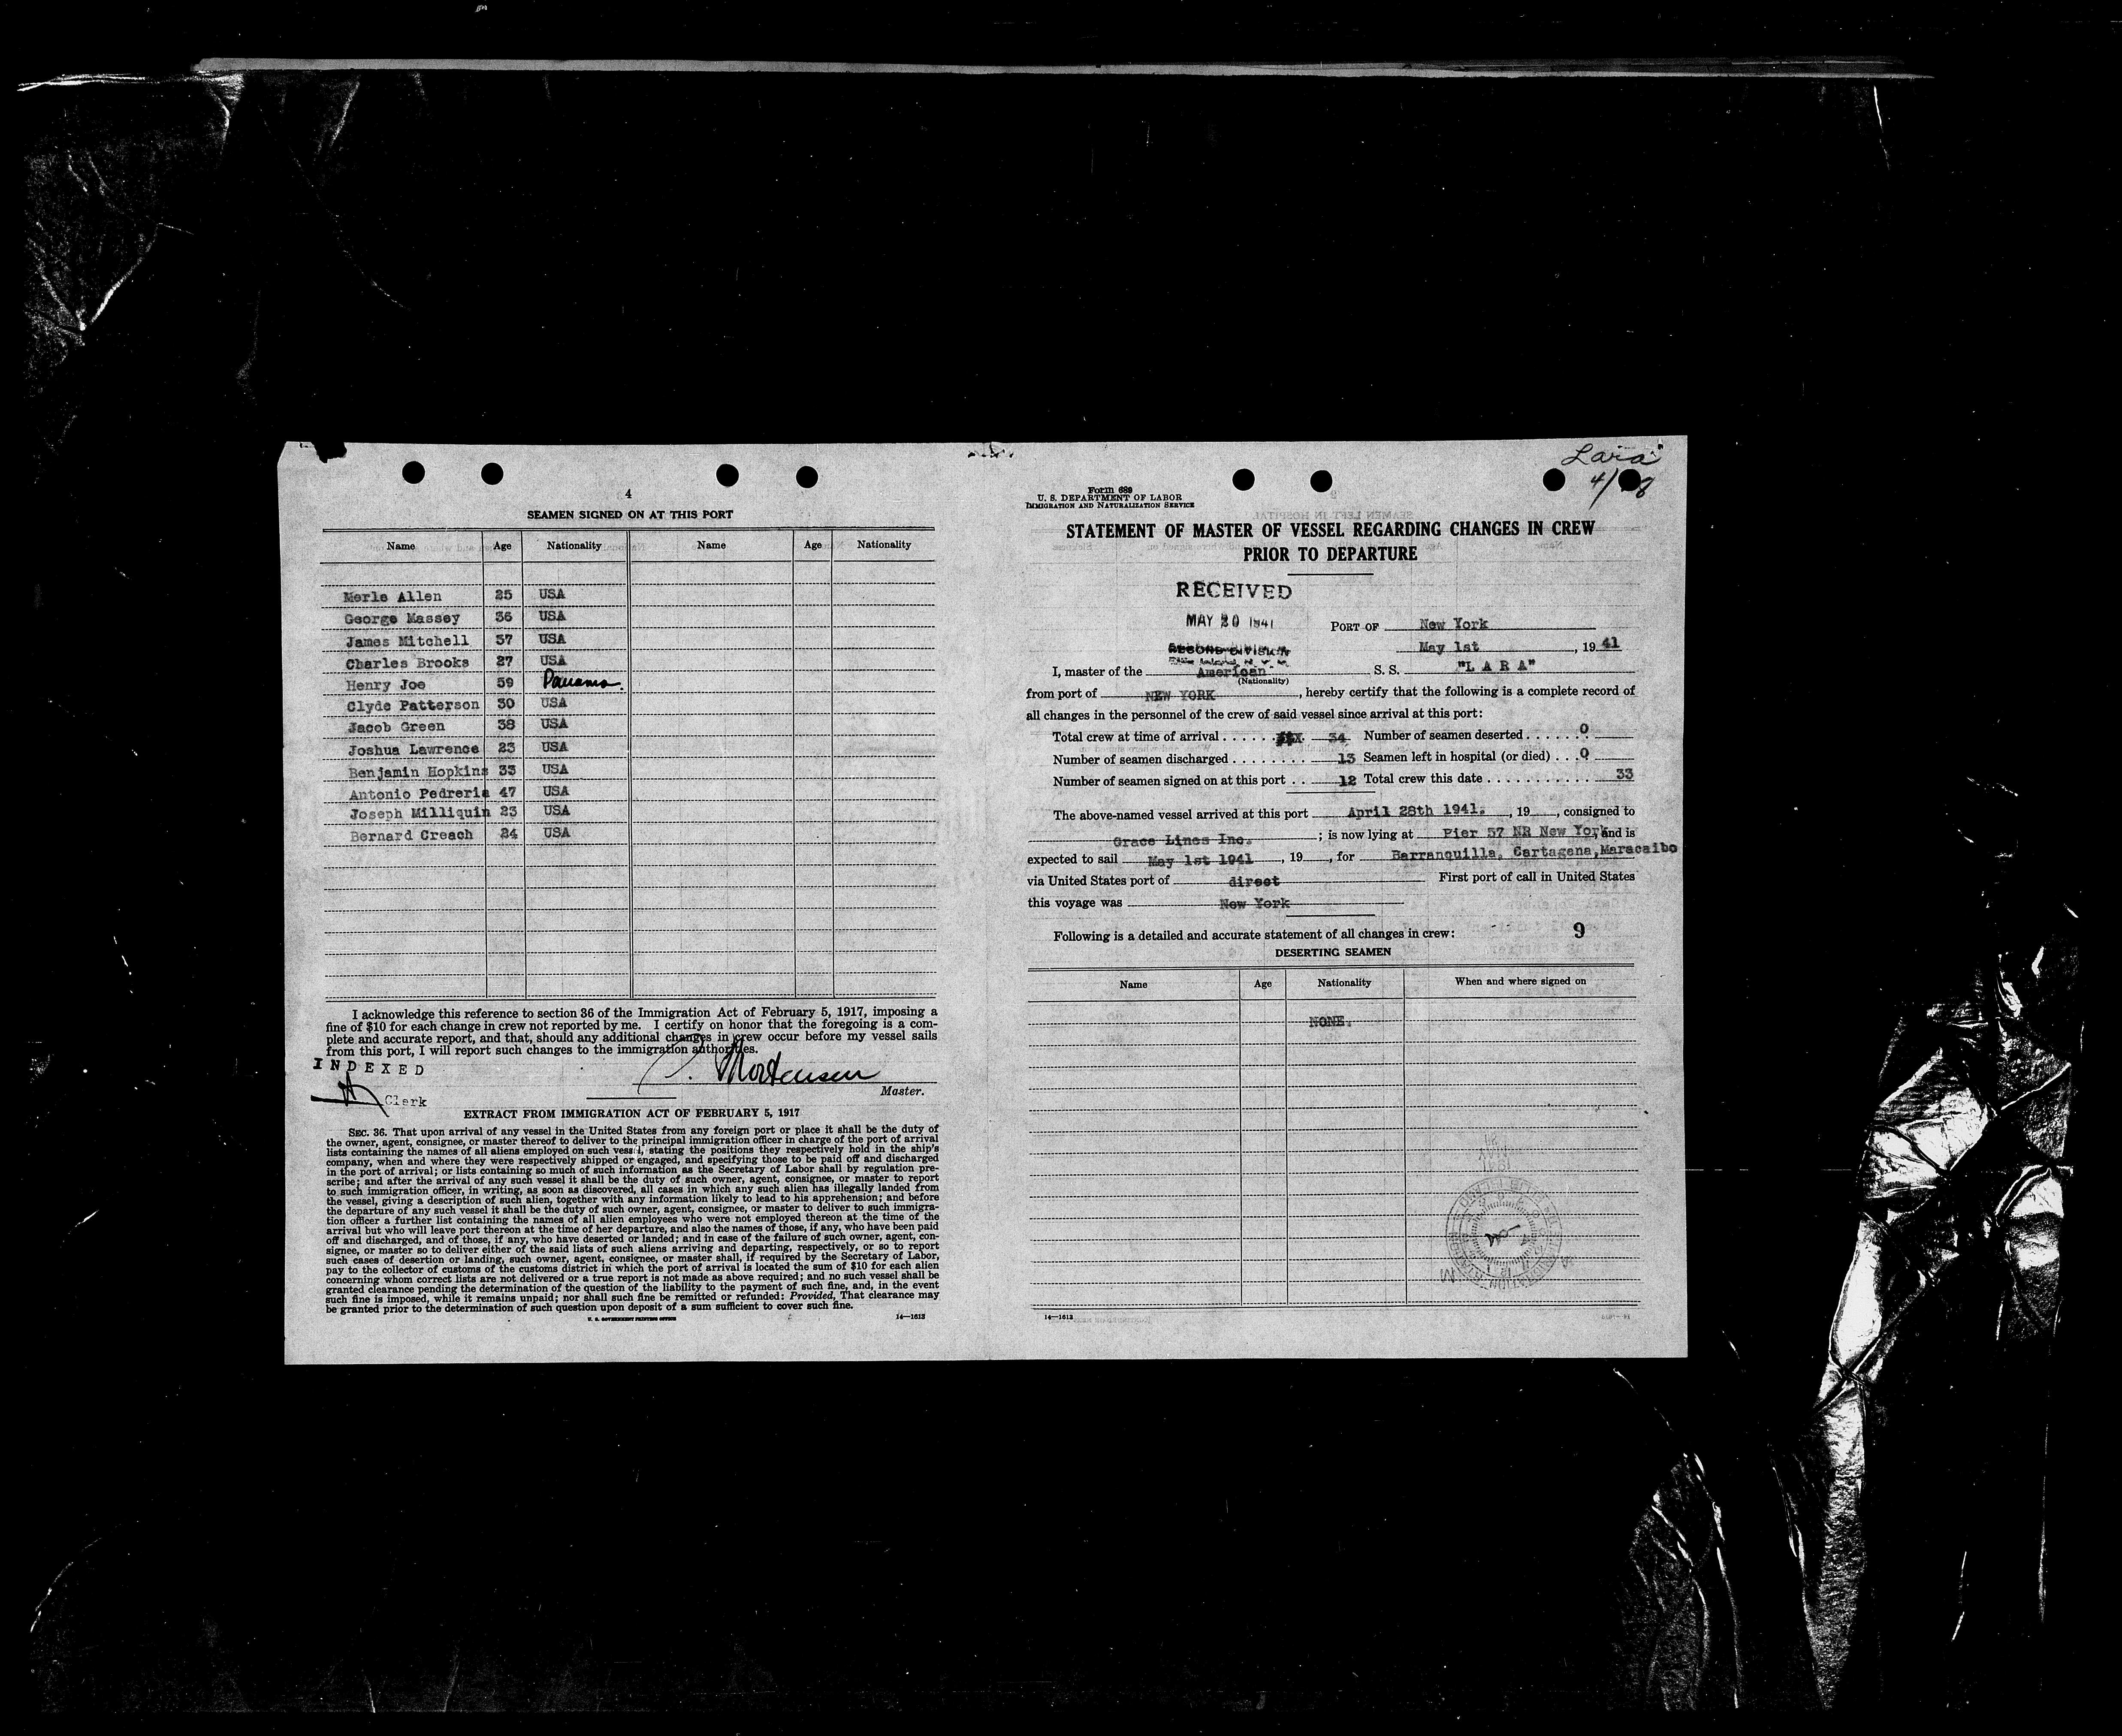 4
SEAMEN SIGNED ON AT THIS PORT
Name Age Nationality Name Age Nationality
Merle Allen 25 USA
George Massey 36 USA
James Mitchell 37 USA
Charles Brooks 27 USA
Henry Joe 59 Panama.
Clyde Patterson 30 USA
Jacob Green 38 USA
Joshua Lawrence 23 USA
Benjamin Hopkins 33 USA
Antonio Pedreria 47 USA
Joseph Milliquin 23 USA
Bernard Creach 24 USA
I acknowledge this reference to section 36 of the Immigration Act of February 5, 1917, imposing a
fine of $10 for each change in crew not reported by me. I certify on honor that the foregoing is a com-
plete and accurate report, and that, should any additional changes in crew occur before my vessel sails
from this port, I will report such changes to the immigration authorities.
INDEXED
Mortensen
Master.
Clerk
EXTRACT FROM IMMIGRATION ACT OF FEBRUARY 5, 1917
SEC. 36. That upon arrival of any vessel in the United States from any foreign port or place it shall be the duty of
the owner, agent, consignee, or master thereof to deliver to the principal immigration officer in charge of the port of arrival
lists containing the names of all aliens employed on such vessel, stating the positions they respectively hold in the ship's
company, when and where they were respectively shipped or engaged, and specifying those to be paid off and discharged
in the port of arrival; or lists containing so much of such information as the Secretary of Labor shall by regulation pre-
scribe; and after the arrival of any such vessel it shall be the duty of such owner, agent, consignee, or master to report
to such immigration officer, in writing, as soon as discovered, all cases in which any such alien has illegally landed from
the vessel, giving a description of such alien, together with any information likely to lead to his apprehension; and before
the departure of any such vessel it shall be the duty of such owner, agent, consignee, or master to deliver to such immigra-
tion officer a further list containing the names of all alien employees who were not employed thereon at the time of the
arrival but who will leave port thereon at the time of her departure, and also the names of those, if any, who have been paid
off and discharged, and of those, if any, who have deserted or landed; and in case of the failure of such owner, agent, con-
signee, or master so to deliver either of the said lists of such aliens arriving and departing, respectively, or so to report
such cases of desertion or landing, such owner, agent, consignee, or master shall, if required by the Secretary of Labor,
pay to the collector of customs of the customs district in which the port of arrival is located the sum of $10 for each alien
concerning whom correct lists are not delivered or a true report is not made as above required; and no such vessel shall be
granted clearance pending the determination of the question of the liability to the payment of such fine, and, in the event
such fine is imposed, while it remains unpaid; nor shall such fine be remitted or refunded: Provided, That clearance may
be granted prior to the determination of such question upon deposit of a sum sufficient to cover such fine.
U. S. GOVERNMENT PRINTING OFFICE 14—1613
Lara
Form 689
U. S. DEPARTMENT OF LABOR
IMMIGRATION AND NATURALIZATION SERVICE
STATEMENT OF MASTER OF VESSEL REGARDING CHANGES IN CREW
PRIOR TO DEPARTURE
RECEIVED
MAY 20 1941
SECOND DIVISION
PORT OF New York
May 1st, 1941
I, master of the American S. S. "L A R A"
(Nationality)
from port of NEW YORK, hereby certify that the following is a complete record of
all changes in the personnel of the crew of said vessel since arrival at this port:
Total crew at time of arrival 34 Number of seamen deserted 0
Number of seamen discharged 13 Seamen left in hospital (or died) 0
Number of seamen signed on at this port 12 Total crew this date 33
The above-named vessel arrived at this port April 28th 1941., 19, consigned to
Grace Lines Inc.; is now lying at Pier 57 NR New York, and is
expected to sail May 1st 1941, 19, for Barranquilla, Cartagena, Maracaibo
via United States port of direct First port of call in United States
this voyage was New York
Following is a detailed and accurate statement of all changes in crew: 9
DESERTING SEAMEN
Name Age Nationality When and where signed on
NONE.
14—1613